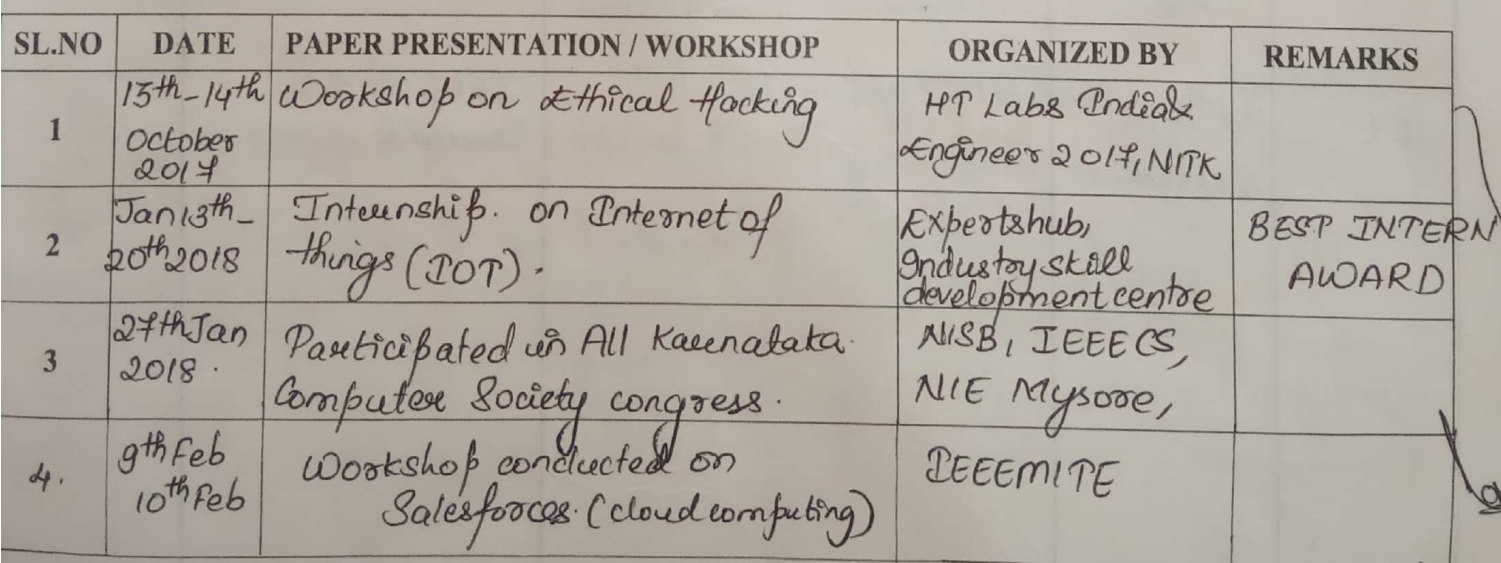 SL.NO DATE PAPER PRESENTATION / WORKSHOP ORGANIZED BY REMARKS
1 13th-14th October 2017 Workshop on Ethical Hacking HT Labs India & Engineer 2017, NITK
2 Jan 13th- 20th 2018 Internship. on Internet of things (IOT). Expertshub, Industry skill development centre BEST INTERN AWARD
3 27th Jan 2018. Participated in All Karnataka Computer Society congress. NISB, IEEE CS, NIE Mysore,
4. 9th Feb 10th Feb Workshop conducted on Salesforces. (cloud computing) IEEEMITE